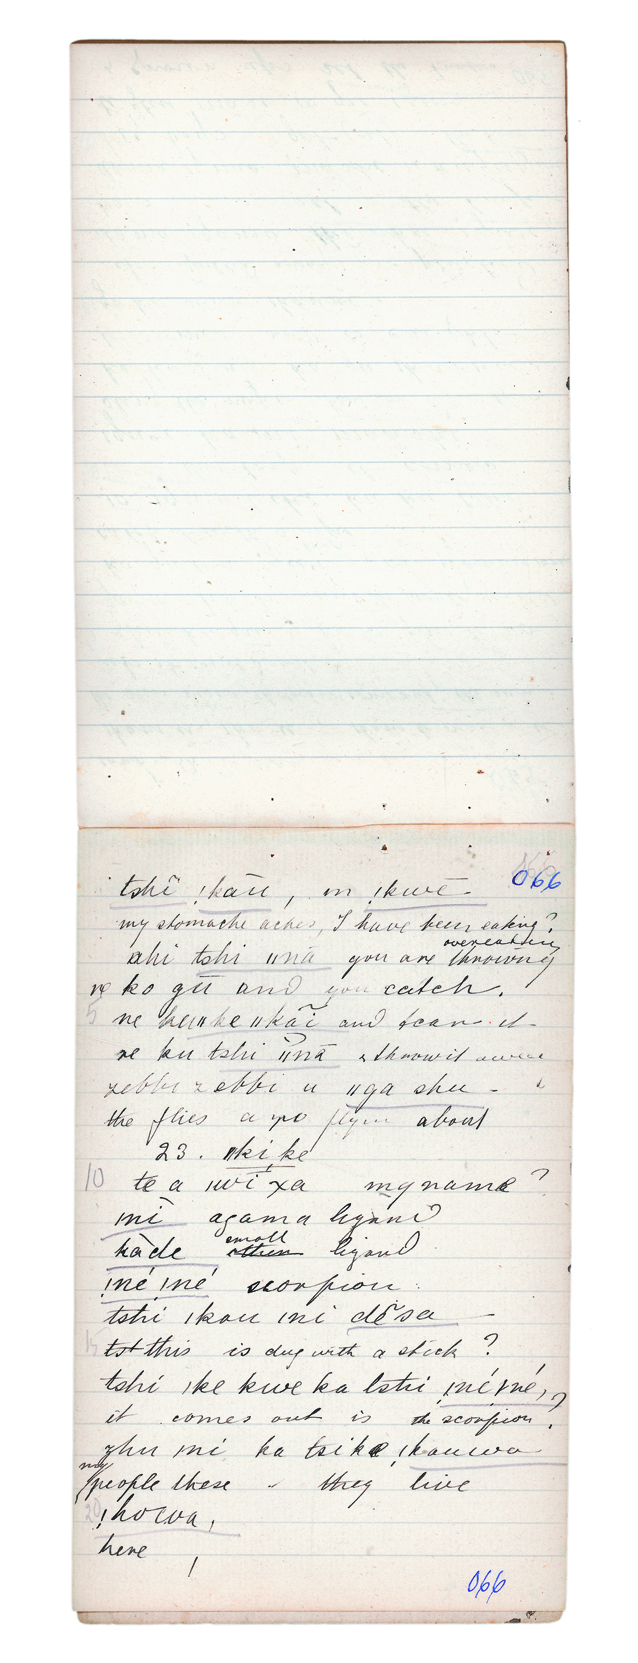 066
tshĩ !kāū, m !kwē
my stomache aches, I have been eating?
overeating
ahi tshi ǁnā you are throwing
ne ko gū and you catch.
5 ne ke ǁke ǁkāĩ and tear it
ne ku tshi ǁnā & throw it away
zebbi zebbi u ǁga shu -
the flies a go flyin about
23. ǁki ke
10 te a ǀwi xa my name?
ǀnī agama lizard
small
kàde lizard
ǃné ǀné scorpion
tshi ǀkou ǀni dĕsa
15 this is dug with a stick?
tshi ǀke kwe ka tshi ǀné ǀné,
it comes out is the scorpion?
zhu ǀni ka tsike !kauwa
my
people these - they live
20 !howa,
here
066